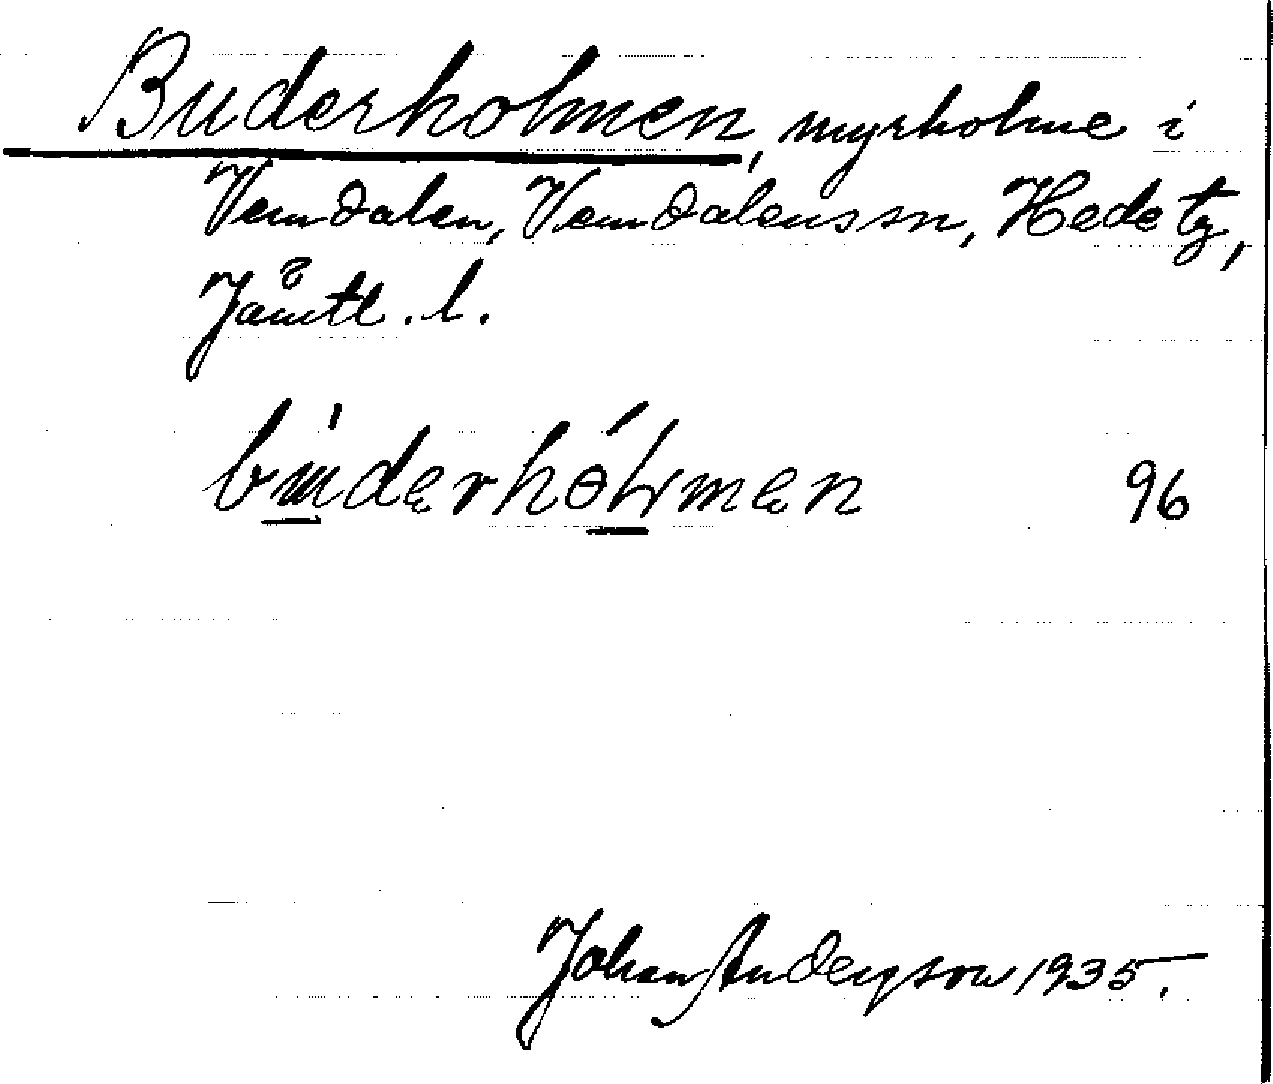 Buderholmen, myrholme i
Vemdalen, Vemdalens sn, Hede tg,
Jämtl. l.
96
Johan Anderson 1935.